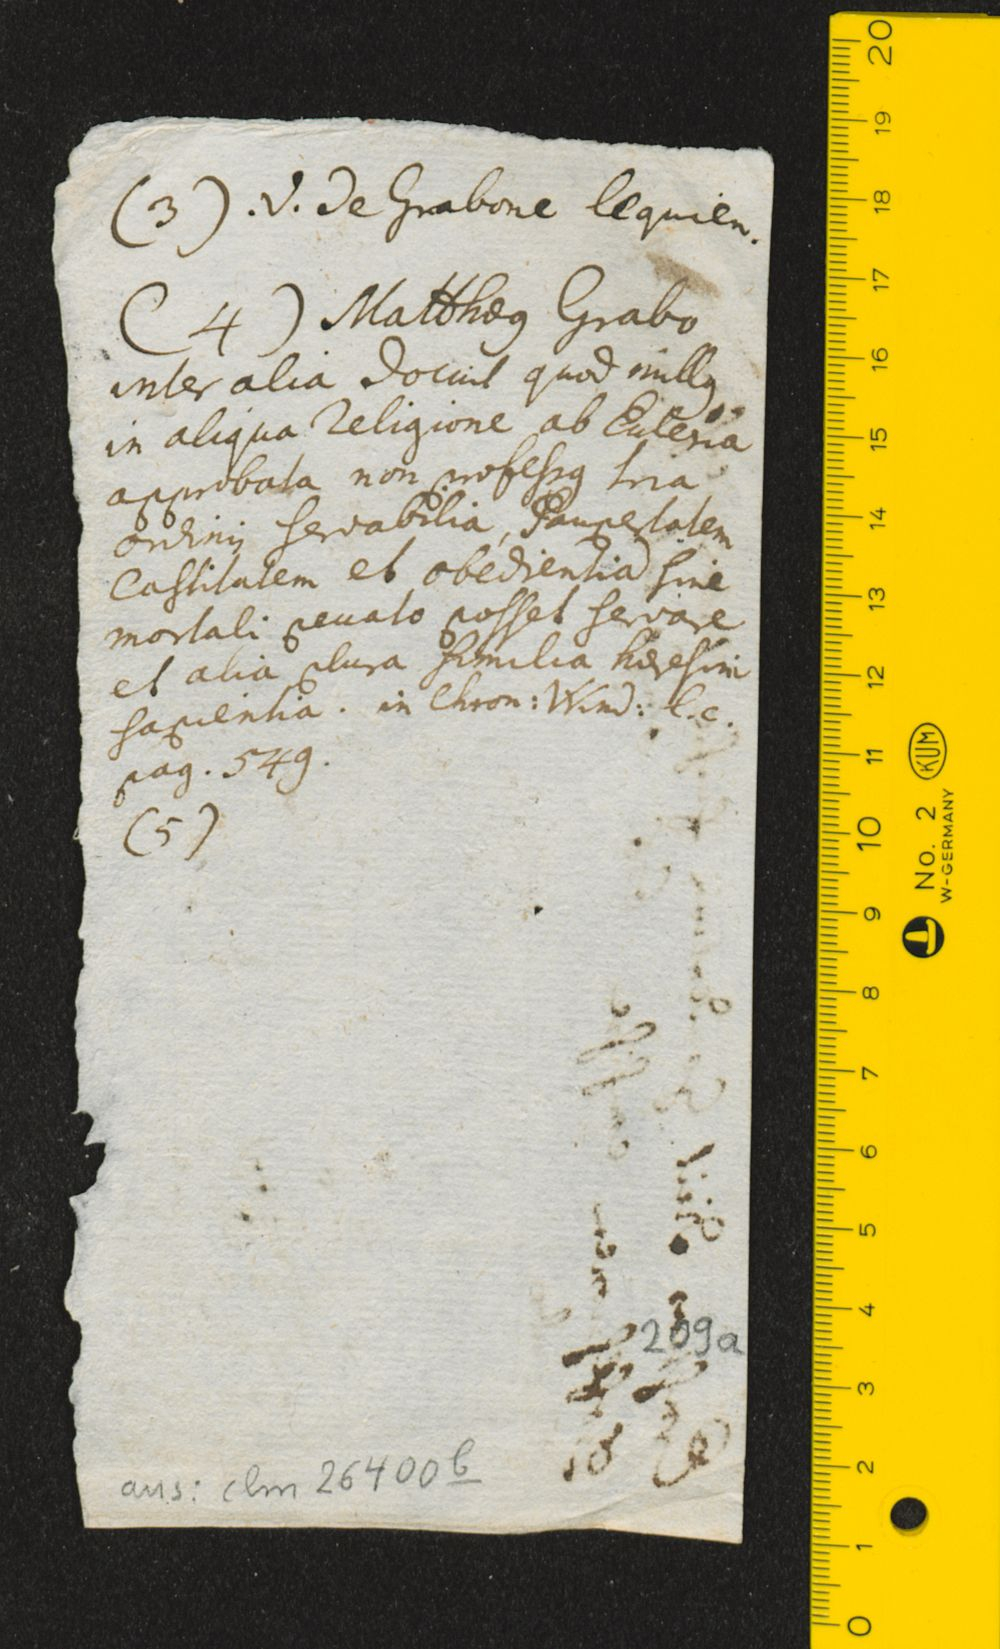 (3). V. de Grabone lequien.
(4) Mattheg Grabo
inter alia docuit quod nullg
in aliqua Religione ab Eccleria
approbata non professg tria
ordinij servabilia, Paupertatem
Castitatem et obedientia sine
mortali peccato posset servare
et alia plura similia hæresim
sapientia. in Chron: Wind: l.c.
pag. 549.
(5)
209a
aus: clm 26400b
20
19
18
17
16
15
14
13
12
11
10
9
8
7
6
5
4
3
2
1
0
KUM
No. 2
W-GERMANY